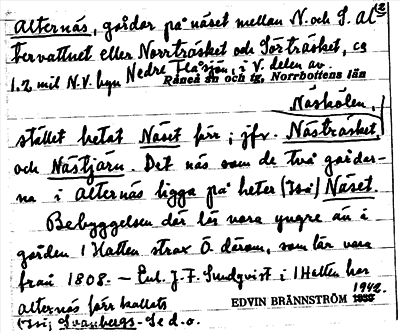 Alternäs, gårdar på näset mellan N. och S. Al-
tervattnet eller Norrträsket och Sörträsket, ca
1.2 mil N.V. byn Nedre Flåsjön, i V. delen av
Råneå sn och tg, Norrbottens län
Näskölen,
stället hetat Näset förr; jfr. Nästräsket,
och Nästjärn. Det näs som de två gårdar-
na i Alternäs ligga på heter (Isä) Näset.
Bebyggelsen där lär vara yngre än i
gården 1 Hatten strax Ö. därom, som lär vara
från 1808. – Enl. J.F. Sundqvist i 1 Hatten har
1942.
Alternäs förr kallats EDVIN BRÄNNSTRÖM 1938
Svanbergs- Se d.o.